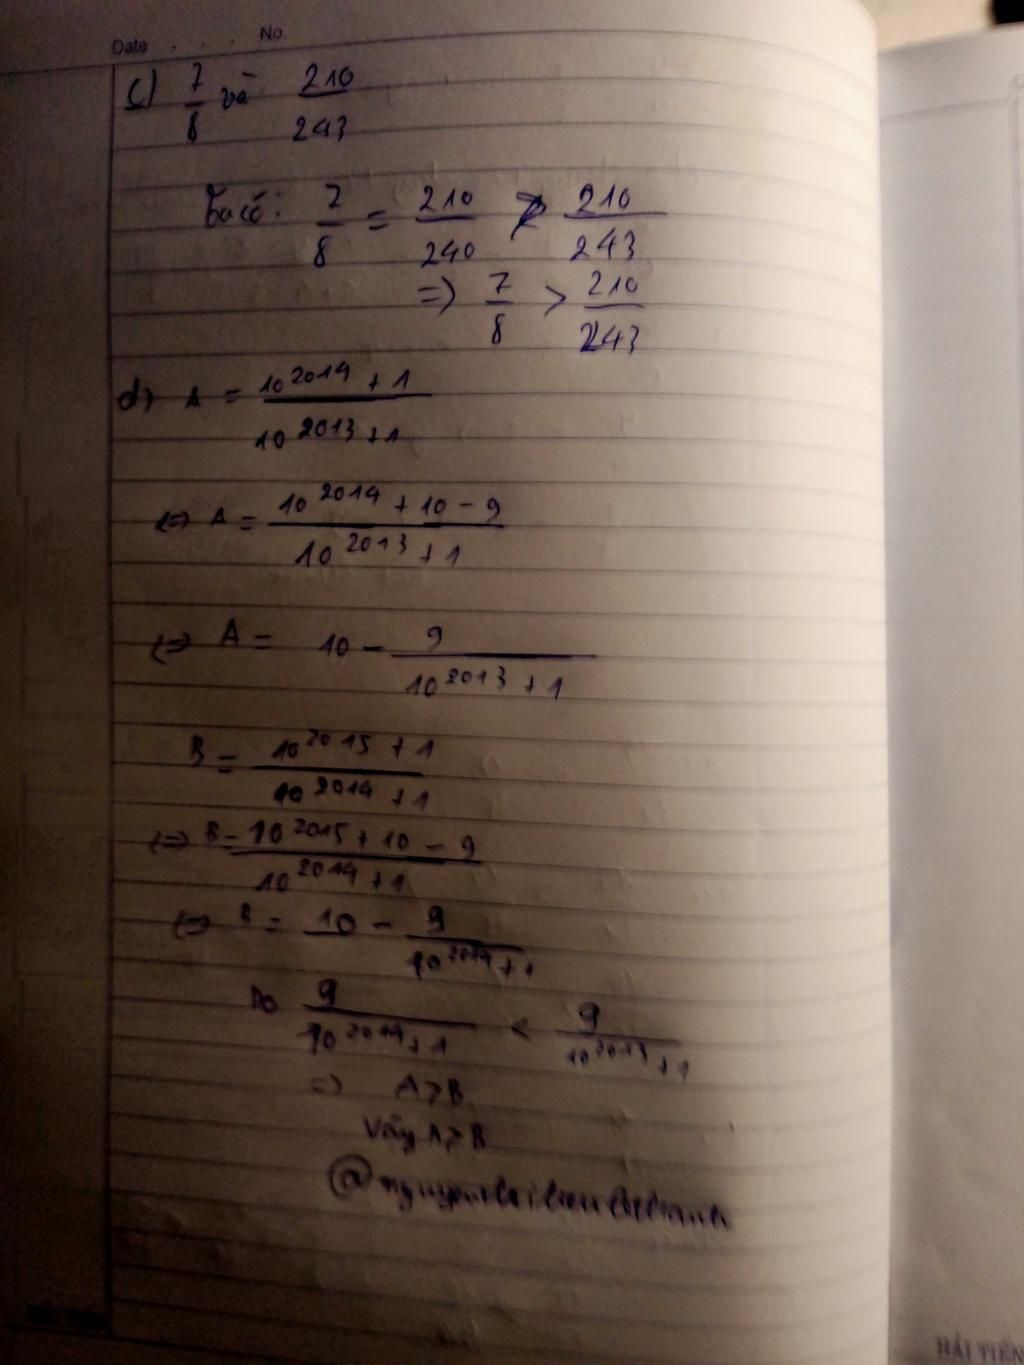 Date . . . . No.
c) 7/8 và 210/243
Ta có: 7/8 = 210/240 > 210/243
=> 7/8 > 210/243
d) A = 10^2014 + 1 / 10^2013 + 1
<=> A = 10^2014 + 10 - 9 / 10^2013 + 1
<=> A = 10 - 9 / 10^2013 + 1
B = 10^2015 + 1 / 10^2014 + 1
<=> B = 10^2015 + 10 - 9 / 10^2014 + 1
<=> B = 10 - 9 / 10^2014 + 1
Do 9 / 10^2014 + 1 < 9 / 10^2013 + 1
=> A > B
Vậy A > B
HẢI TIẾN